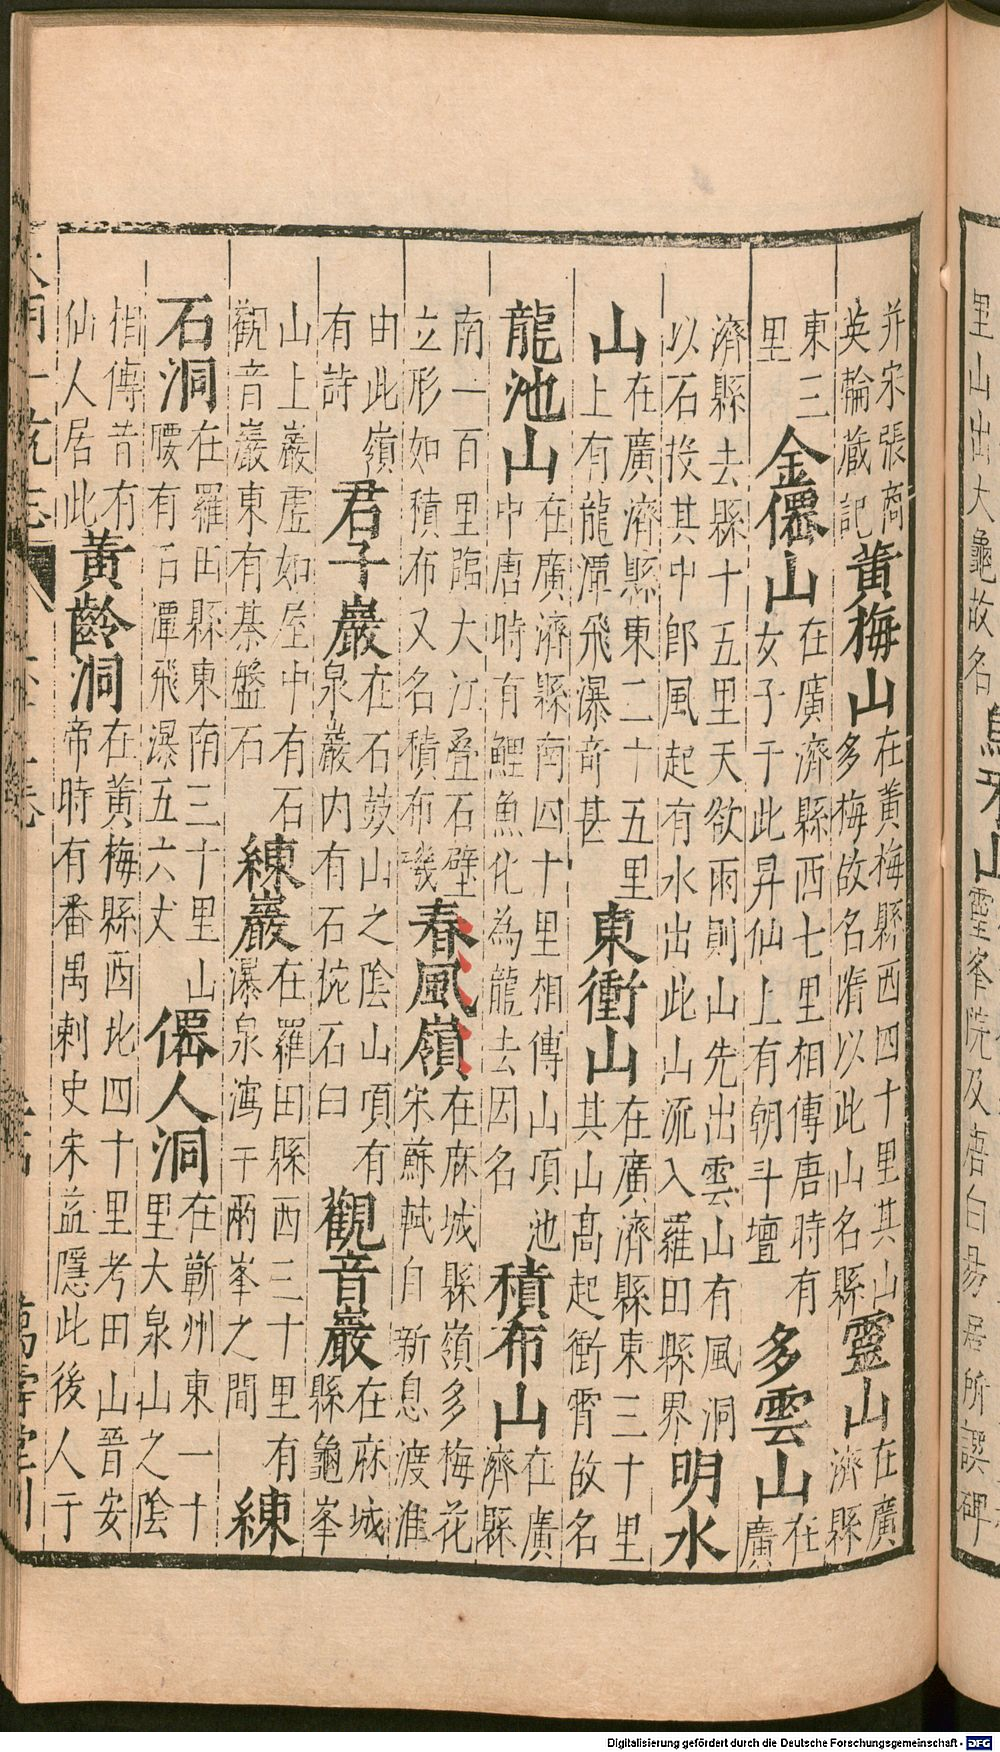 并宋張商英輪蔵記黃梅山在黃梅縣西四十里其山多梅故名隋以此山名縣靈山在廣濟縣
東三里金僊山在廣濟縣西七里相傳唐時有女子于此昇仙上有朝斗壇多雲山在廣
濟縣去縣十五里天欲雨則山先出雲山有風洞以石投其中卽風起有水出此山流入羅田縣界明水
山在廣濟縣東二十五里上有龍潭飛瀑奇甚東衝山在廣濟縣東三十里其山高起衝霄故名
龍池山在廣濟縣南四十里相傳山頂池中唐時有鯉魚化為龍去因名積布山在廣濟縣
南一百里臨大江疊石壁立形如積布又名積布磯春風嶺在麻城縣嶺多梅花宋蘇軾自新息渡淮
由此嶺有詩君子巖在石鼓山之陰山頂有泉巖內有石梡石臼觀音巖在麻城縣龜峯
山上巖虛如屋中有石觀音巖東有棊盤石練巖在羅田縣西三十里有瀑泉瀉于兩峯之間練
石洞在羅田縣東南三十里山腰有石潭飛瀑五六丈僊人洞在蘄州東一十里大泉山之陰
相傳昔有仙人居此黃齡洞在黃梅縣西北四十里考田山晉安帝時有番禺刺史宋益隱此後人于
大明一統志
萬壽堂刊
里山出大龜故名馬牙山靈峯院及唐白易居所譔碑
Digitalisierung gefördert durch die Deutsche Forschungsgemeinschaft - DFG